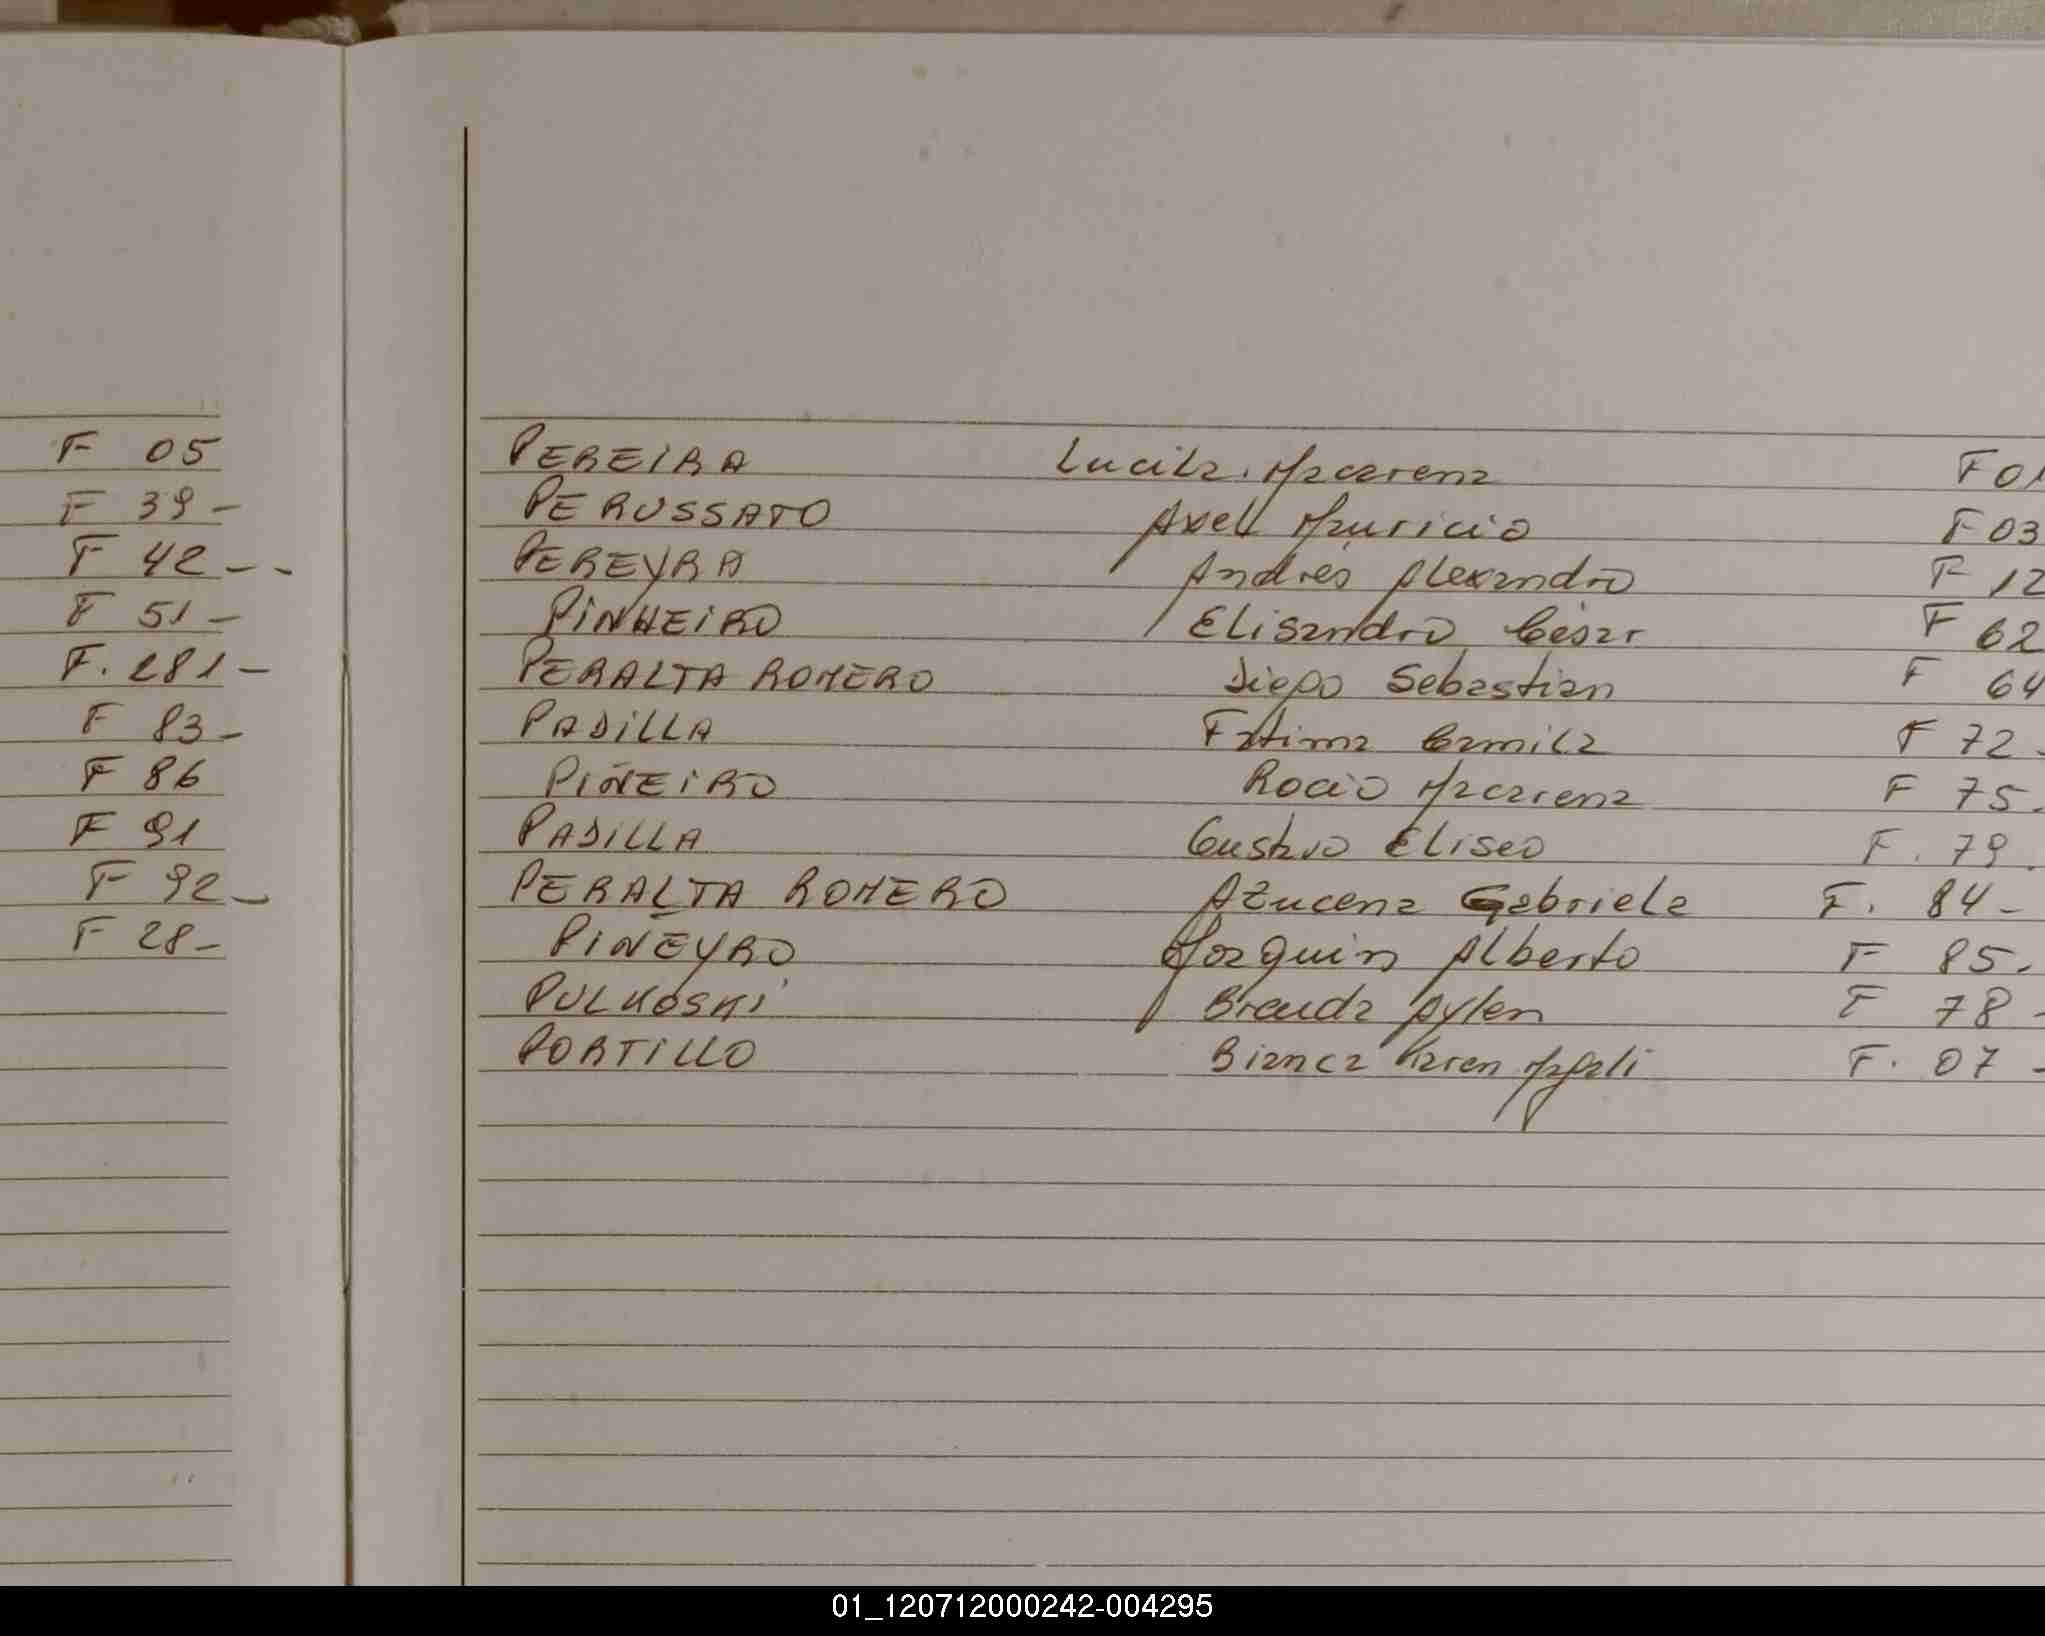 F 05
F 39 -
F 42 - -
F 51 -
F. 281 -
F 83 -
F 86
F 91
F 92 -
F 28 -
PEREIRA Lucila Macarena F 01
PERUSSATO Axel Mauricio F 03
PEREYRA Andrés Alexandro F 12
PINHEIRO Elisandro César F 62
PERALTA ROMERO Diego Sebastian F 64
PADILLA Fatima Camila F 72 -
PIÑEIRO Rocio Macarena F 75.
PADILLA Gustvo Eliseo F. 79.
PERALTA ROMERO Azucena Gabriela F. 84 -
PIÑEYRO Joaquin Alberto F 85.
PULKOSKI Brenda Aylen F 78 -
PORTILLO Bianca Karen Magali F. 07 -
01_120712000242-004295